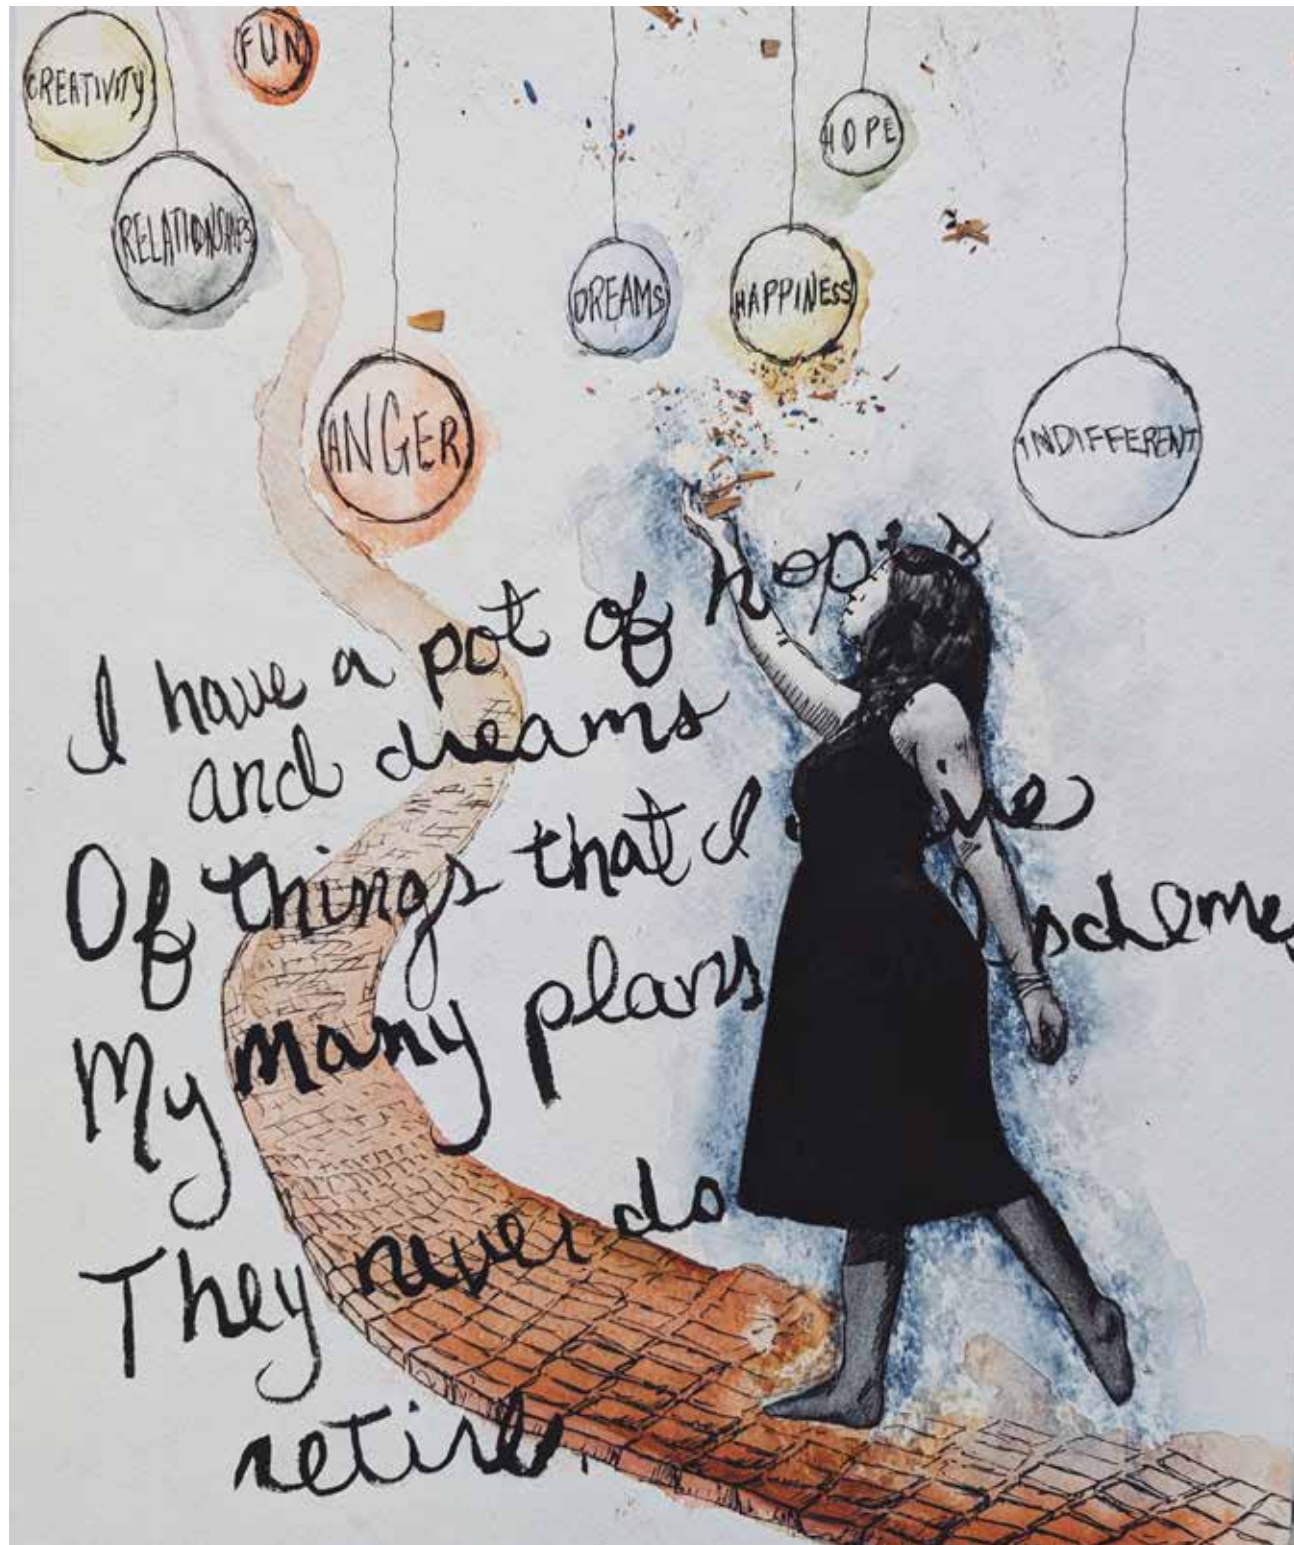 CREATIVITY
FUN
HOPE
RELATIONSHIPS
DREAMS
HAPPINESS
ANGER
INDIFFERENT
I have a pot of hopes
and dreams
Of things that I
My many plans schemes
They never do
retire